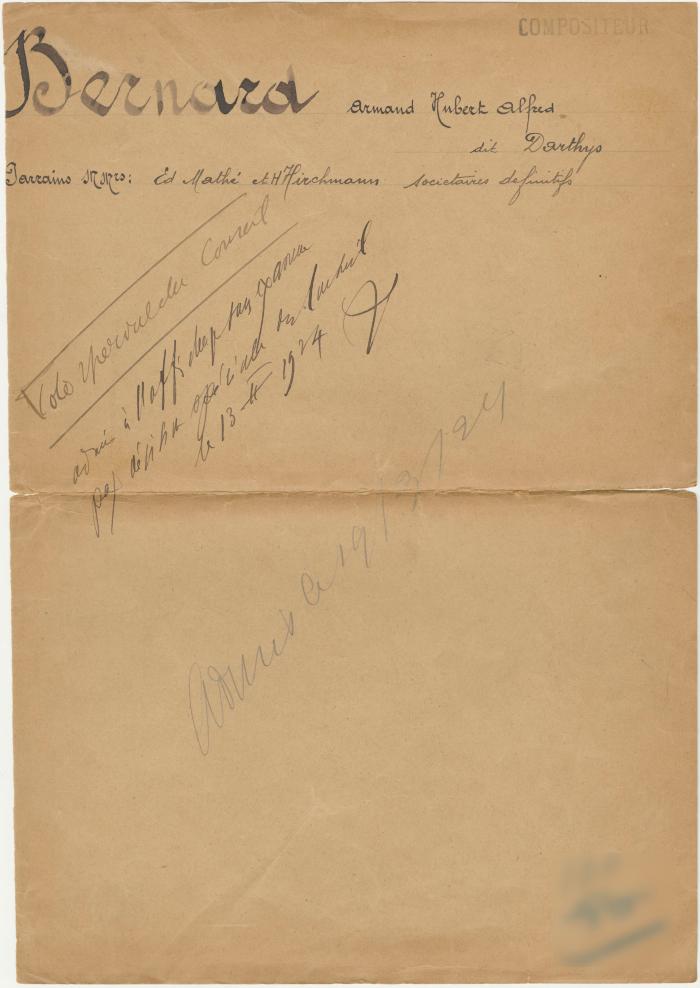 COMPOSITEUR
Bernard Armand Hubert Alfred
dit Darthys
Parrains MMrs: Ed Mathé et H Hirchmann societaires definitifs
Vote du Conseil
admis à l'affichage sans examen
par décision spéciale du Conseil
le 13 II 1924
Admis le 19/3/24